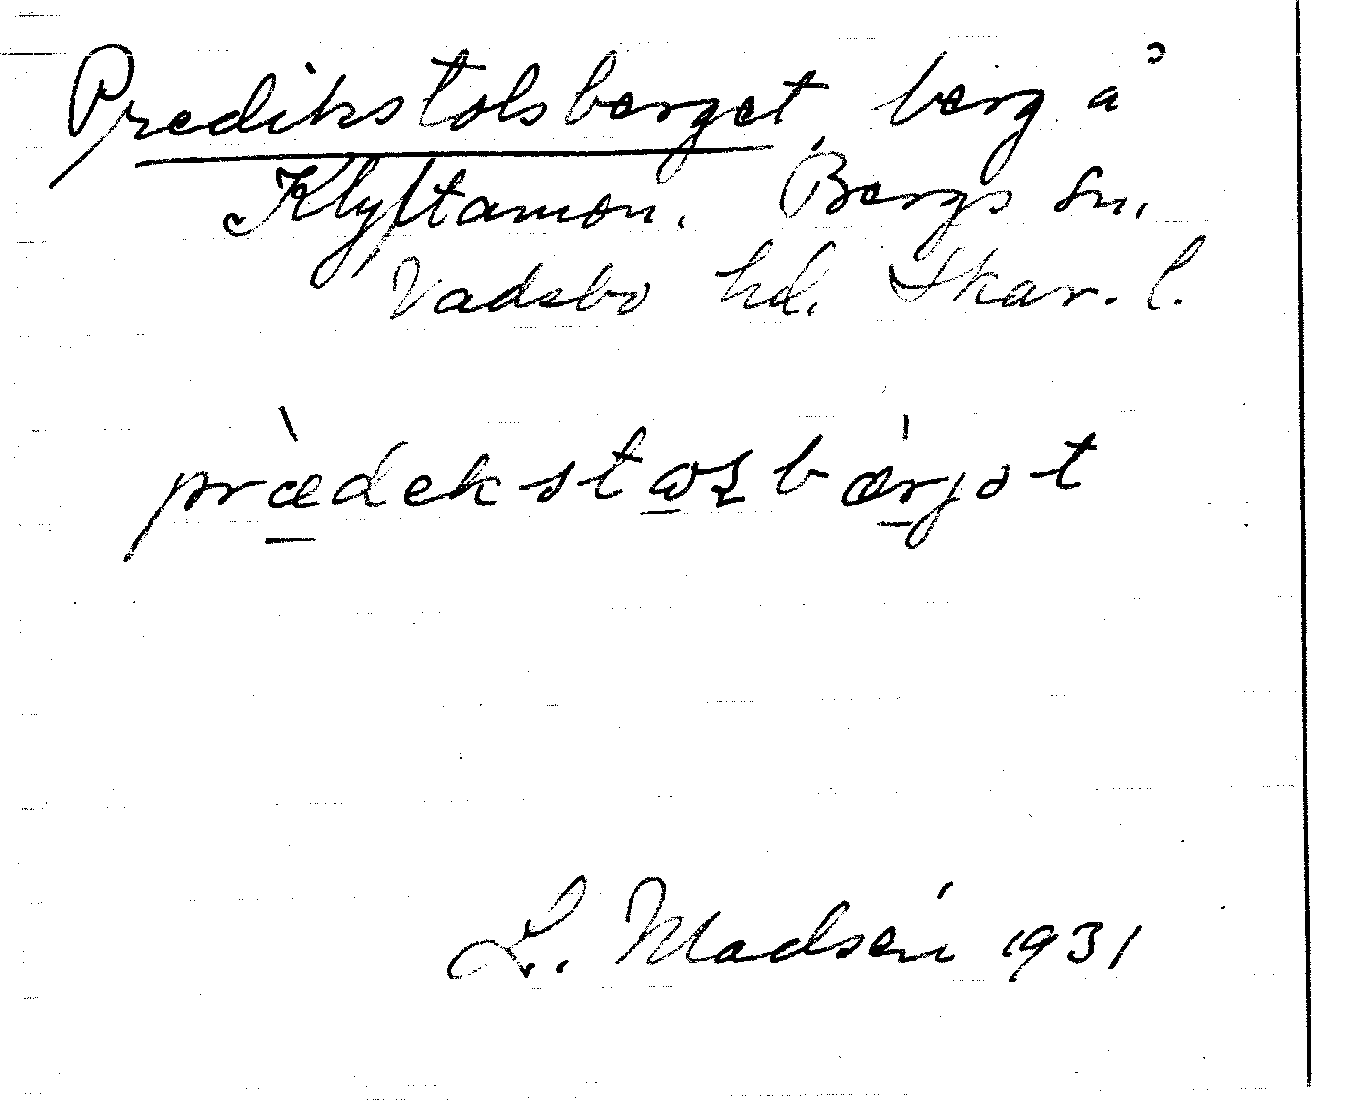 Predikstolsberget, berg å
Klyftamon. Bergs sn.
Vadsbo hd. Skar. l.
prædekstɷsbærjət
L. Madsén 1931